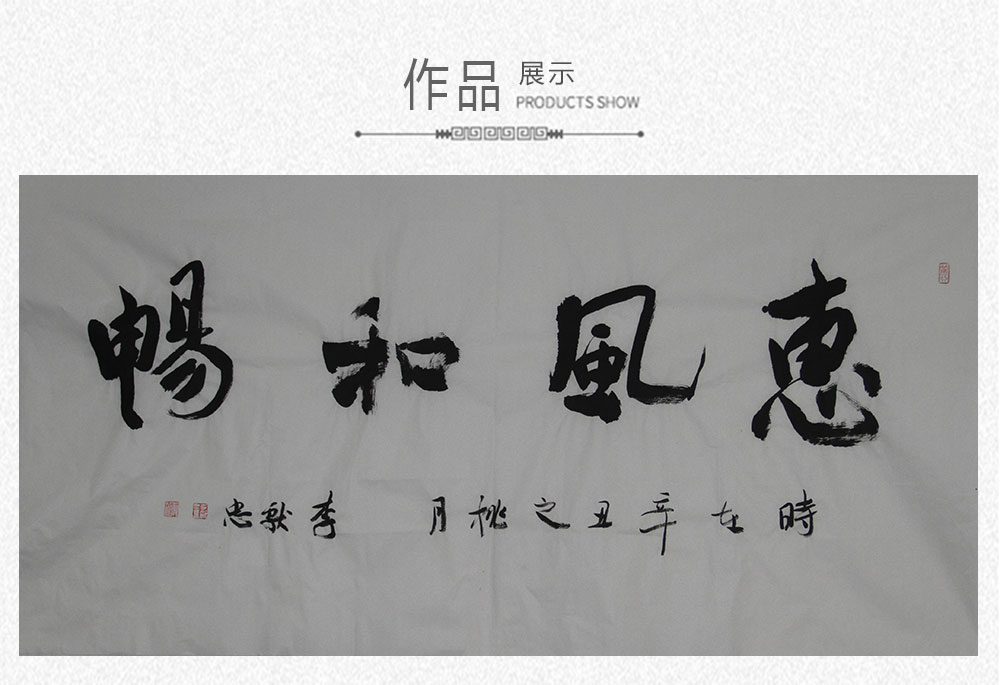 作品
展示
PRODUCTS SHOW
惠風和暢
時在辛丑之桃月 李献忠